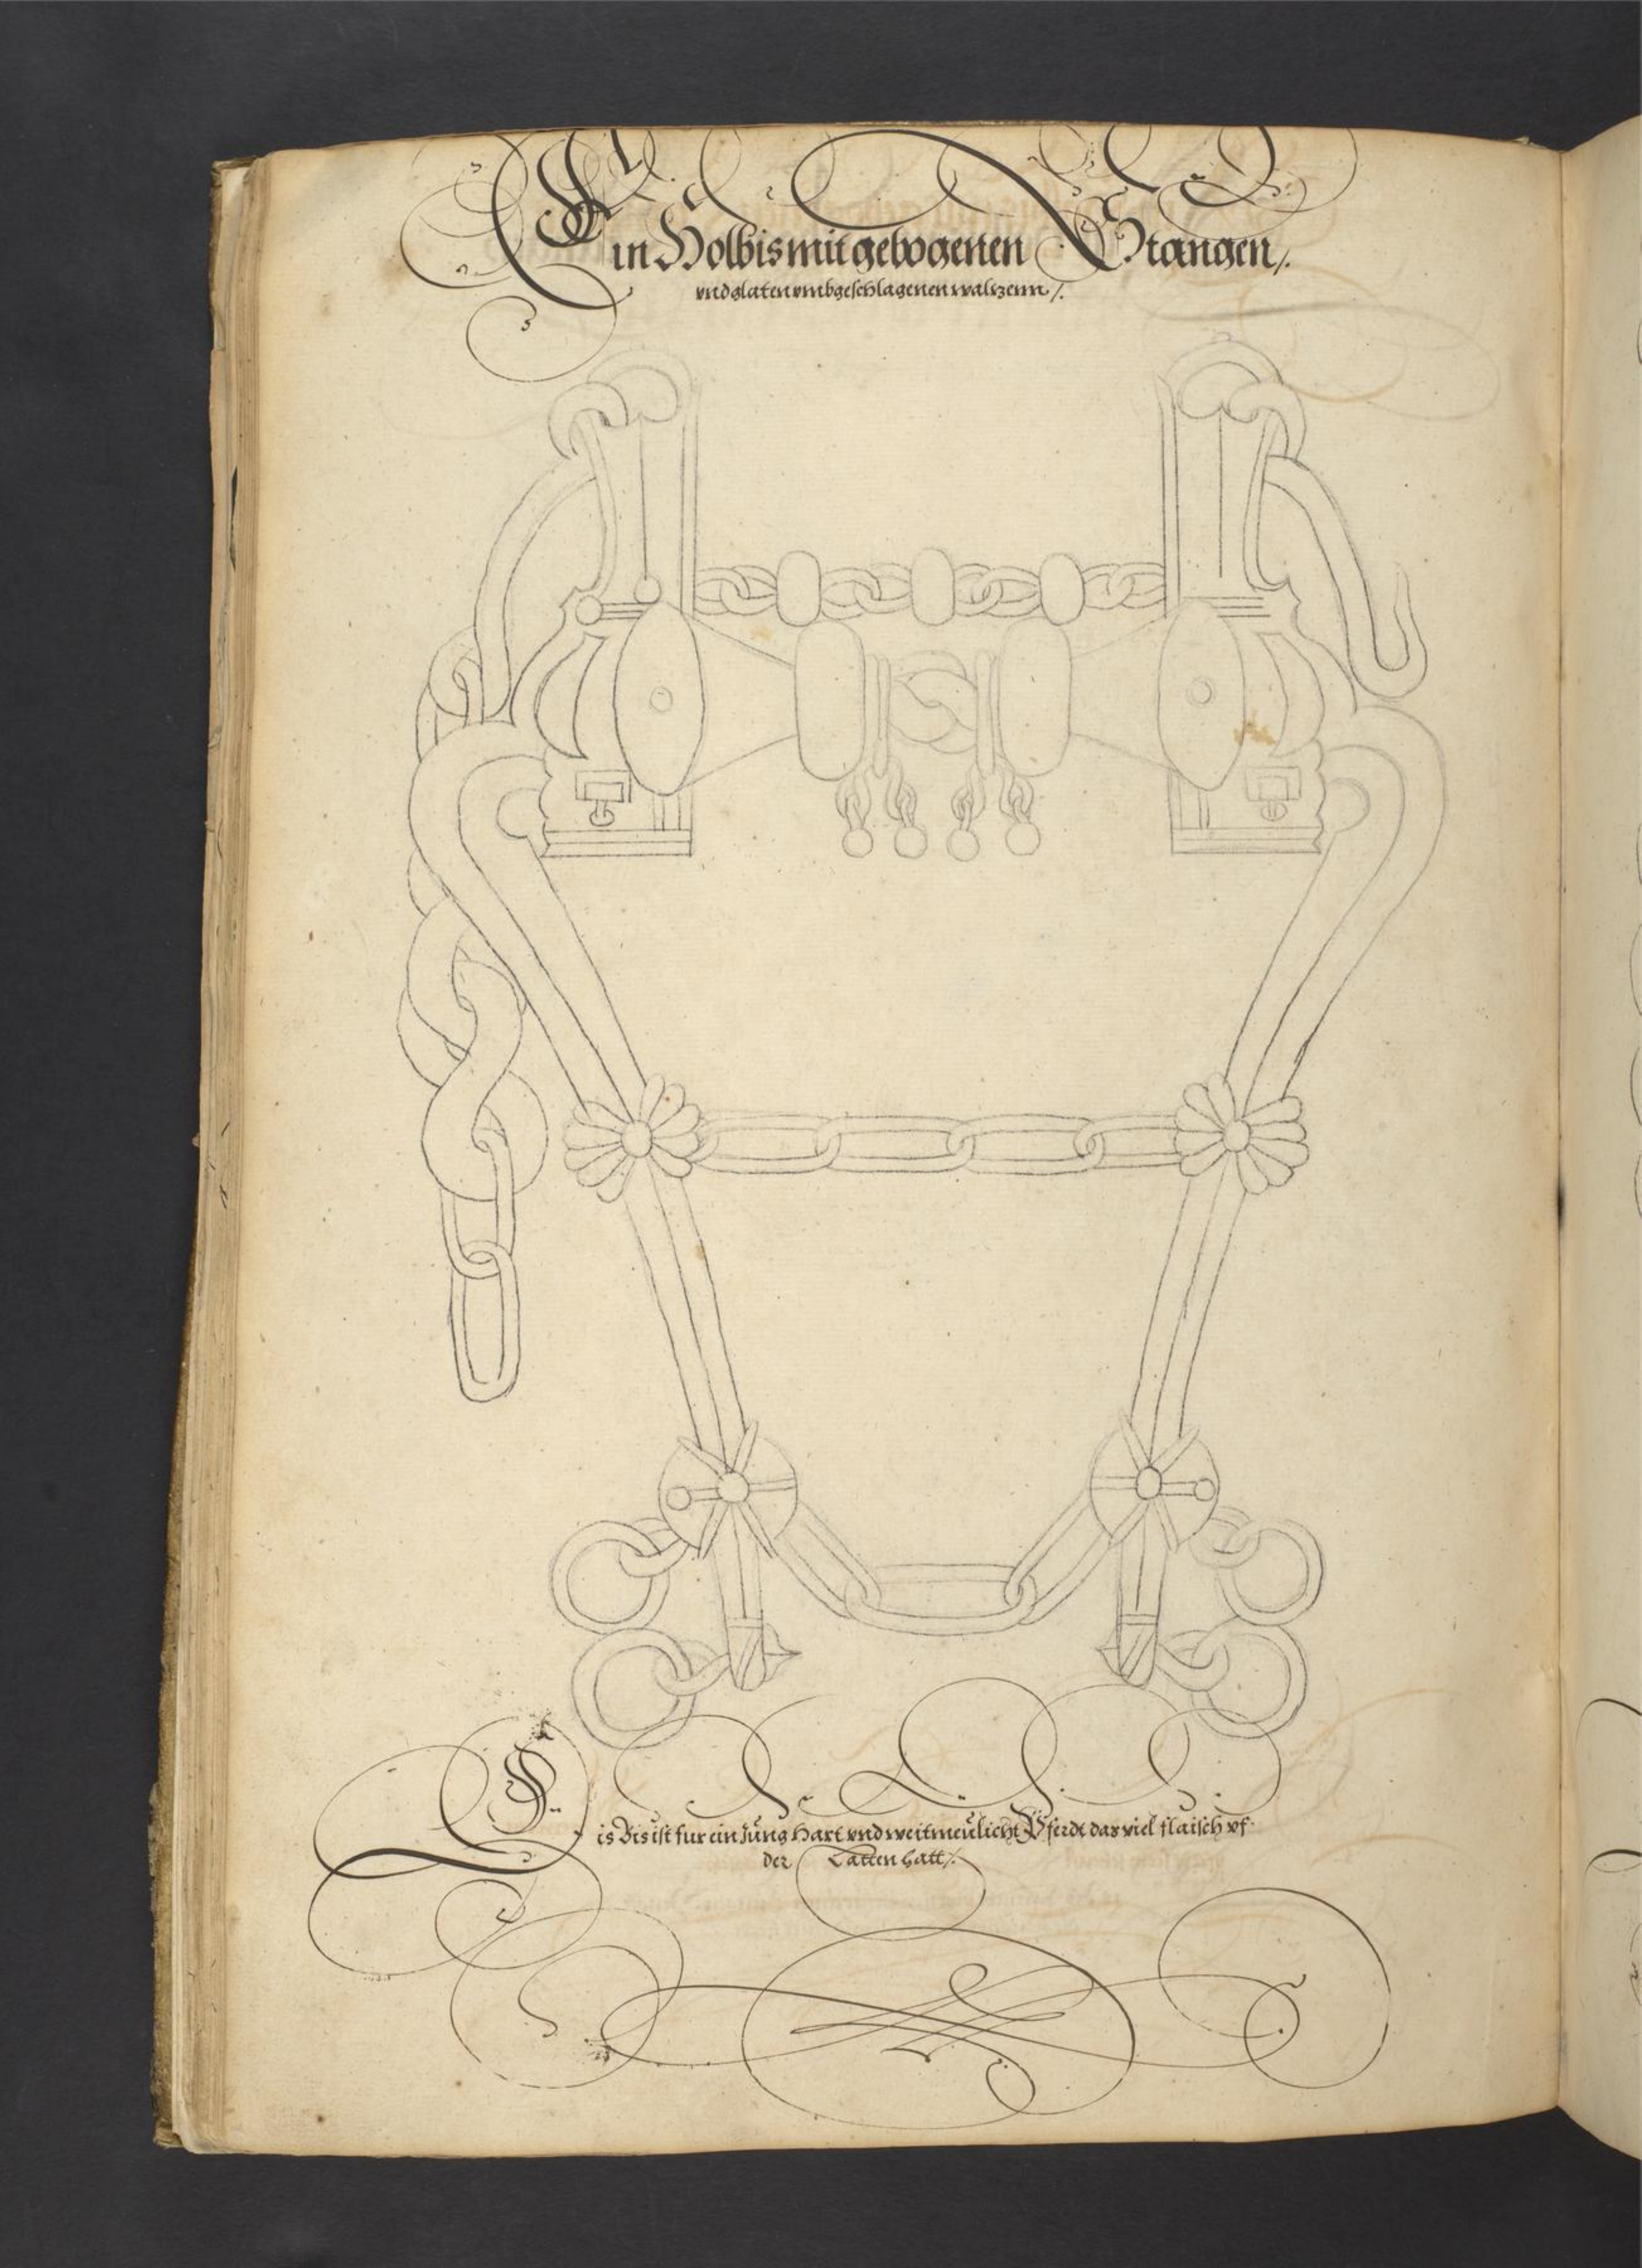 Ein Holbis mit gebogenen Stangen /.
vnd glaten vmbgeschlagenen waltzenn /.
Dis Bis ist fur ein Jung hart vnd weitmeulicht Pferdt das viel flaisch vf
der Latten hatt /.